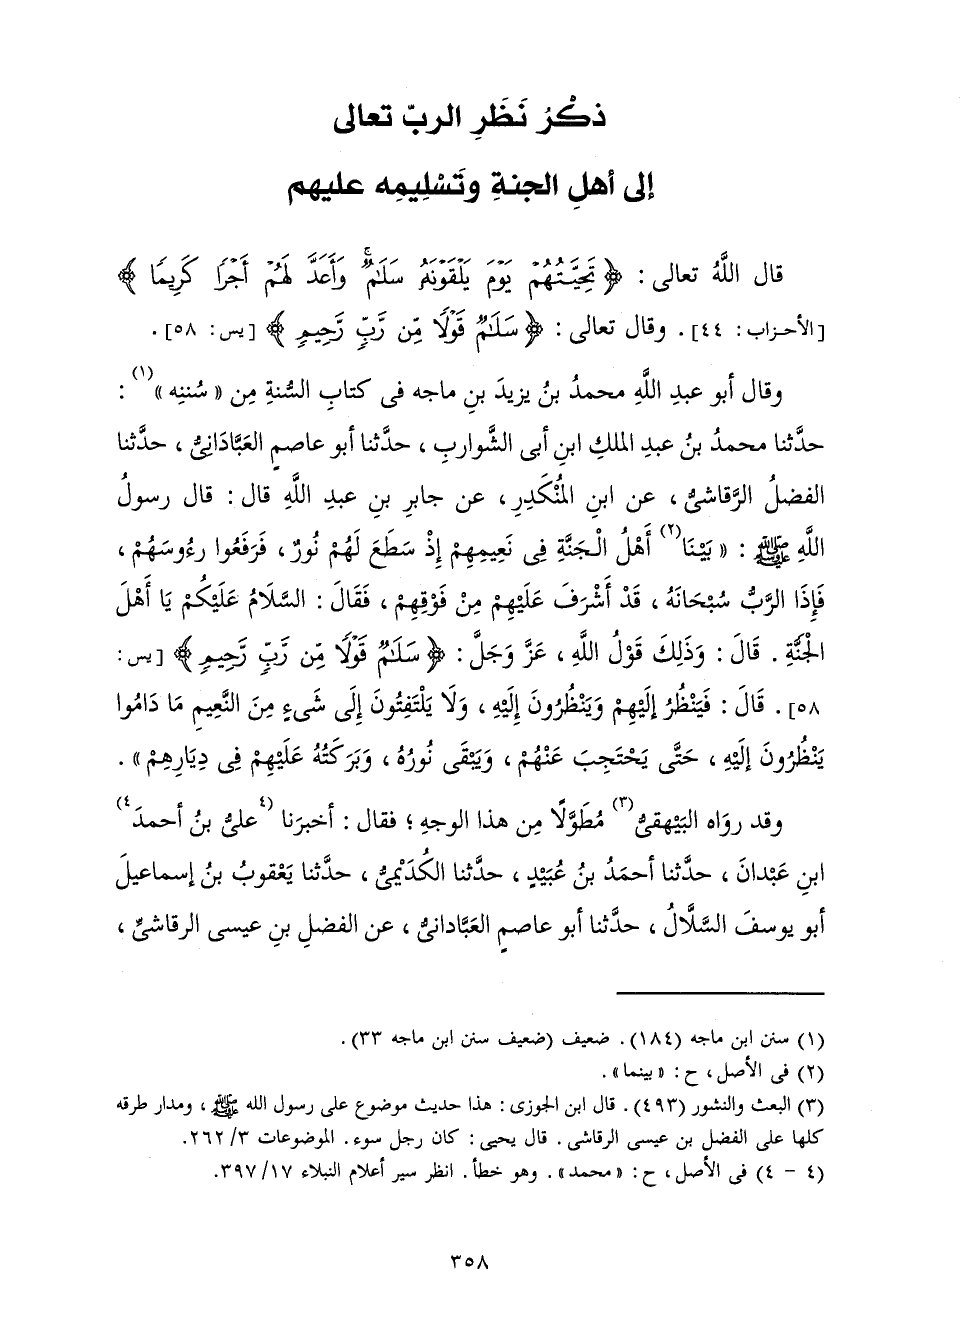 ذكْرُ نَظَرِ الربّ تعالى
إلى أهلِ الجنةِ وتَسْلِيمِه عليهم
قال اللَّهُ تعالى : ﴿ تَحِيَّتُهُمْ يَوْمَ يَلْقَوْنَهُۥ سَلَٰمٌۚ وَأَعَدَّ لَهُمْ أَجْرًا كَرِيمًا ﴾
[الأحزاب: ٤٤] . وقال تعالى : ﴿ سَلَٰمٌ قَوْلًا مِّن رَّبٍّ رَّحِيمٍ ﴾ [يس: ٥٨] .
وقال أبو عبدِ اللَّهِ محمدُ بنُ يزيدَ بنِ ماجه فى كتابِ السُّنةِ مِن « سُننِه »(١) :
حدَّثنا محمدُ بنُ عبدِ الملكِ ابنِ أبى الشَّواربِ ، حدَّثنا أبو عاصمٍ العَبَّادَانِىُّ ، حدَّثنا
الفضلُ الرَّقاشىُّ ، عن ابنِ المُنْكَدِرِ ، عن جابرِ بنِ عبدِ اللَّهِ قال : قال رسولُ
اللَّهِ ﷺ : « بَيْنَا(٢) أَهْلُ الْجَنَّةِ فِى نَعِيمِهِمْ إِذْ سَطَعَ لَهُمْ نُورٌ ، فَرَفَعُوا رءُوسَهُمْ ،
فَإِذَا الرَّبُّ سُبْحَانَهُ ، قَدْ أَشْرَفَ عَلَيْهِمْ مِنْ فَوْقِهِمْ ، فَقَالَ : السَّلَامُ عَلَيْكُمْ يَا أَهْلَ
الْجَنَّةِ . قَالَ : وَذَلِكَ قَوْلُ اللَّهِ ، عَزَّ وَجَلَّ : ﴿ سَلَٰمٌ قَوْلًا مِّن رَّبٍّ رَّحِيمٍ ﴾ [يس:
٥٨] . قَالَ : فَيَنْظُرُ إِلَيْهِمْ وَيَنْظُرُونَ إِلَيْهِ ، وَلَا يَلْتَفِتُونَ إِلَى شَىءٍ مِنَ النَّعِيمِ مَا دَامُوا
يَنْظُرُونَ إِلَيْهِ ، حَتَّى يَحْتَجِبَ عَنْهُمْ ، وَيَبْقَى نُورُهُ ، وَبَرَكَتُهُ عَلَيْهِمْ فِى دِيَارِهِمْ » .
وقد رواه البَيْهقىُّ(٣) مُطَوَّلًا مِن هذا الوجهِ ؛ فقال : أخبرَنا (٤علىُّ بنُ أحمدَ٤)
ابنِ عَبْدانَ ، حدَّثنا أحمَدُ بنُ عُبَيْدٍ ، حدَّثنا الكُدَيْمِىُّ ، حدَّثنا يَعْقوبُ بنُ إسماعيلَ
أبو يوسفَ السَّلَّالُ ، حدَّثنا أبو عاصمٍ العَبَّادانىُّ ، عن الفضلِ بنِ عيسى الرقاشىِّ ،
(١) سنن ابن ماجه (١٨٤). ضعيف (ضعيف سنن ابن ماجه ٣٣).
(٢) فى الأصل، ح: «بينما».
(٣) البعث والنشور (٤٩٣). قال ابن الجوزى: هذا حديث موضوع على رسول الله ﷺ، ومدار طرقه
كلها على الفضل بن عيسى الرقاشى. قال يحيى: كان رجل سوء. الموضوعات ٣/ ٢٦٢.
(٤ - ٤) فى الأصل، ح: «محمد». وهو خطأ. انظر سير أعلام النبلاء ١٧/ ٣٩٧.
٣٥٨